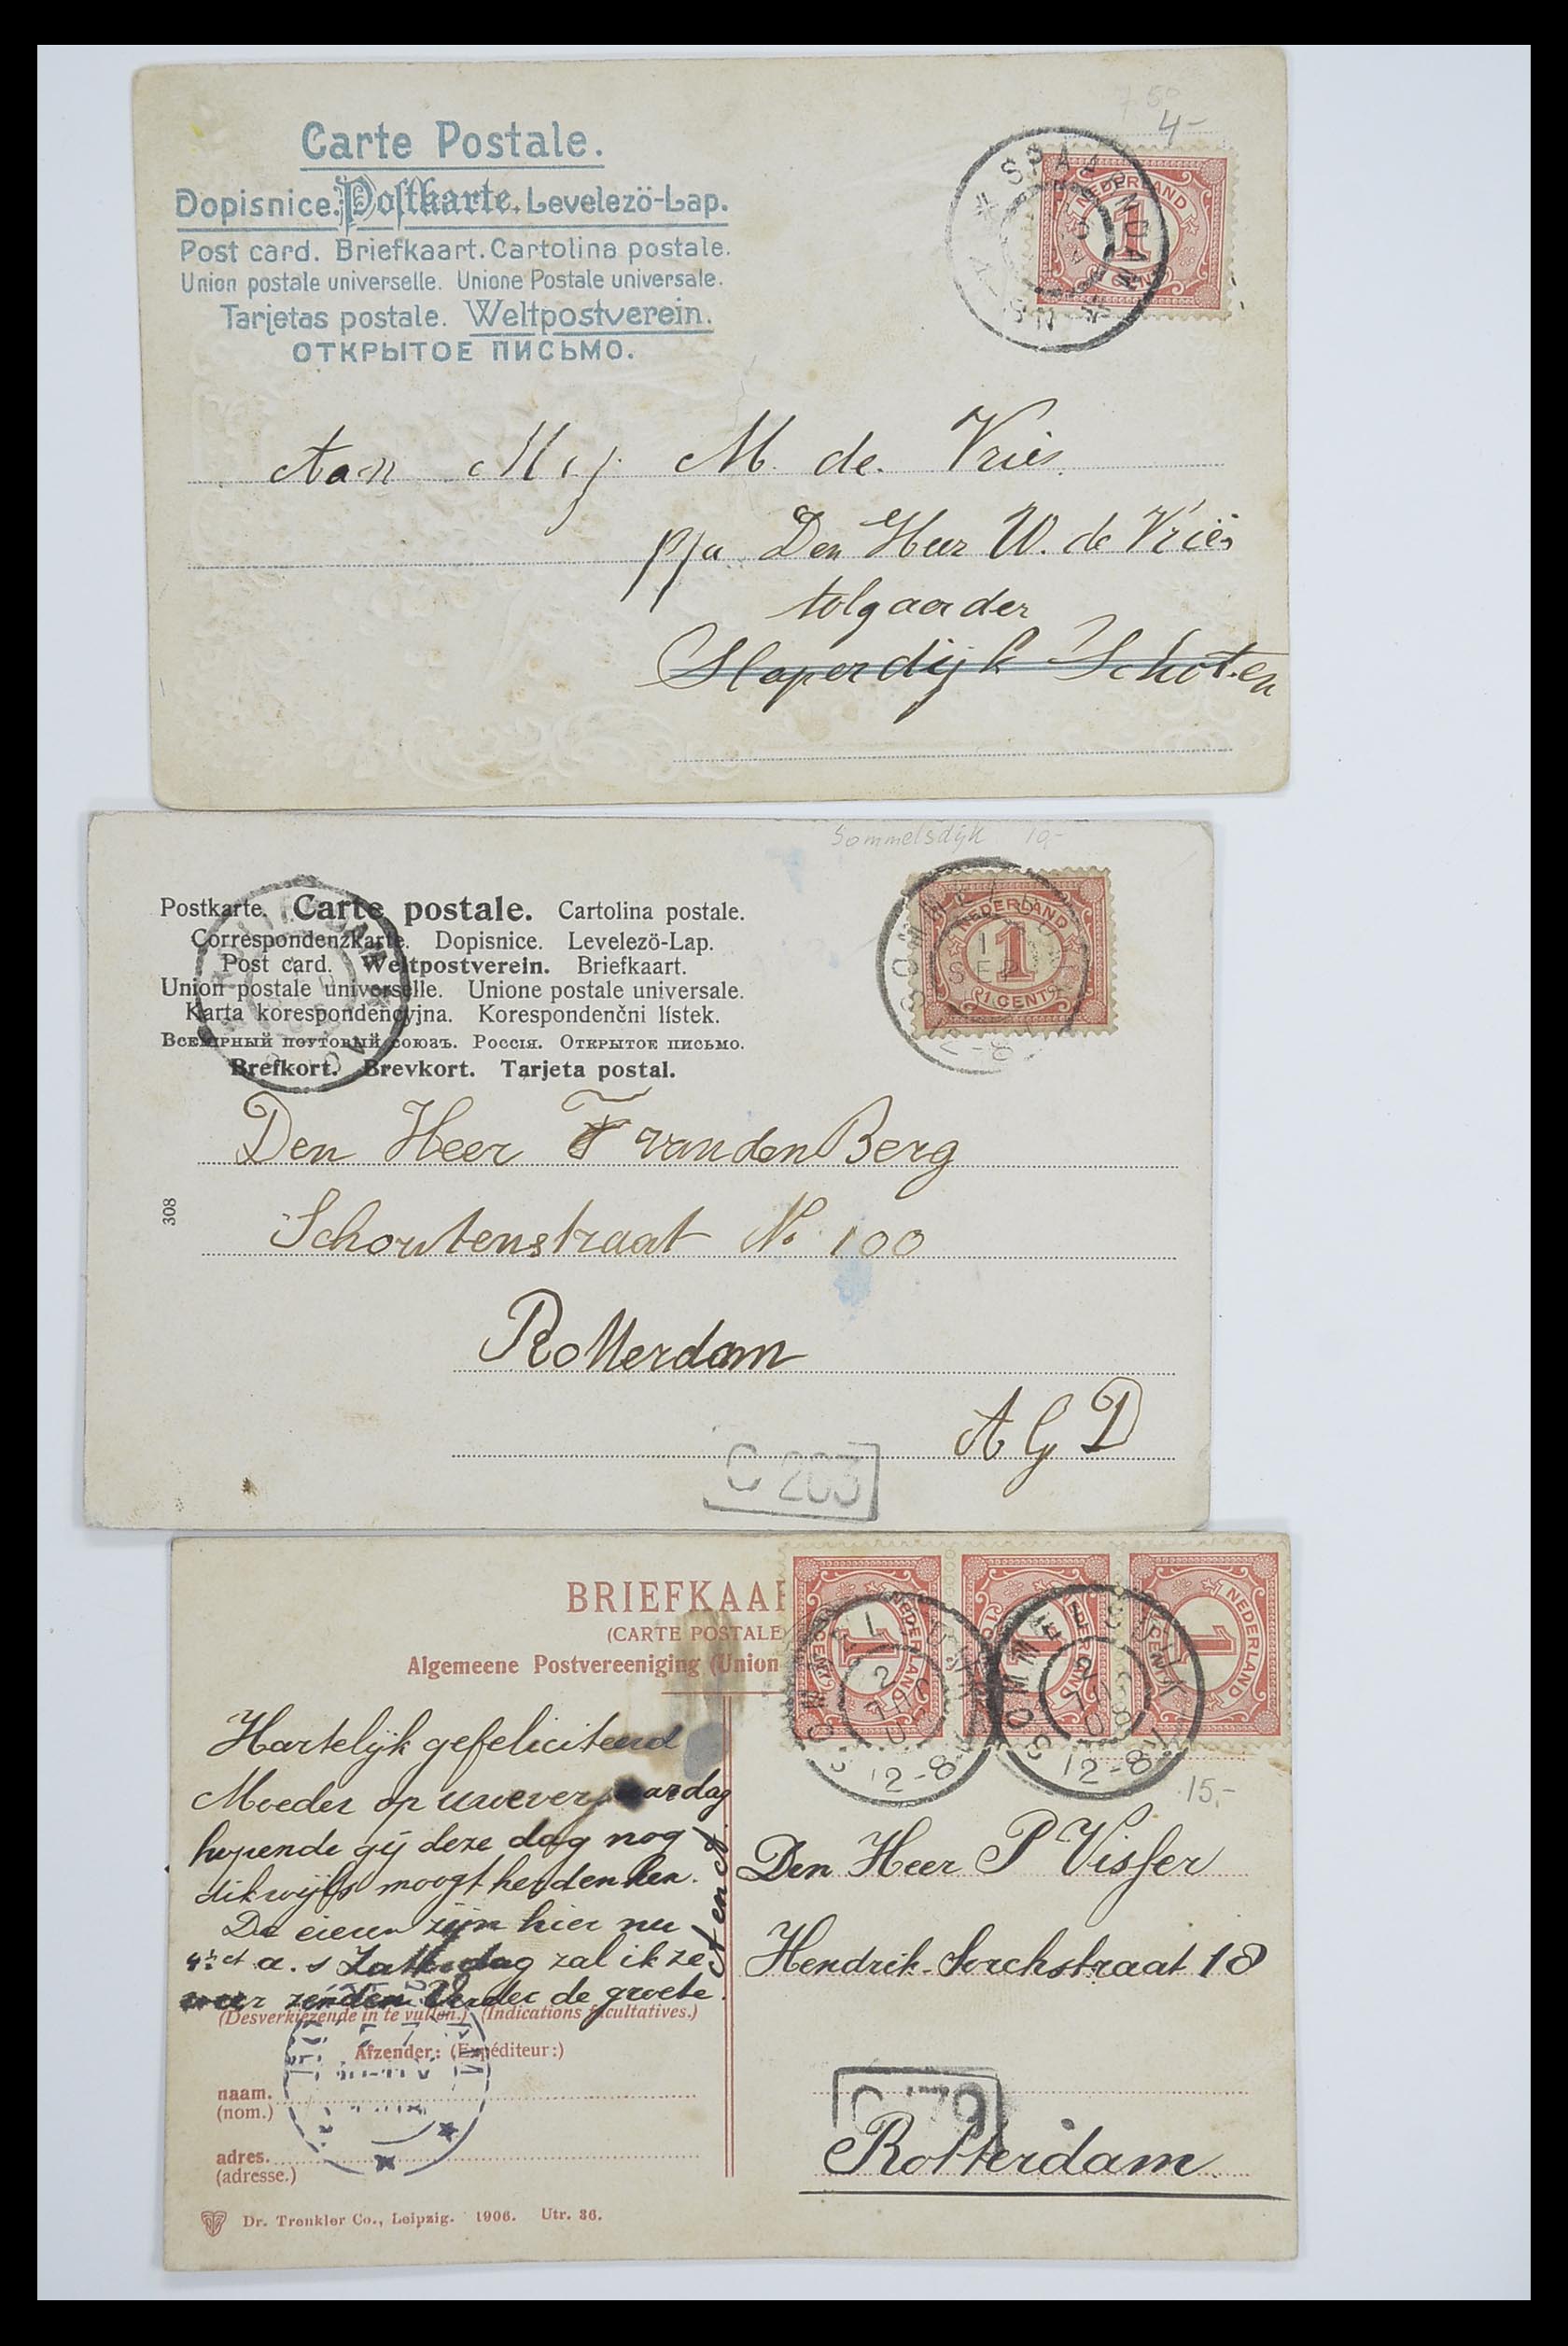 7 50
4-
Carte Postale.
Dopisnice. Postkarte. Levelezö-Lap.
Post card. Briefkaart. Cartolina postale.
Union postale universelle. Unione Postale universale.
Tarjetas postale. Weltpostverein.
ОТКРЫТОЕ ПИСЬМО.
NEDERLAND
1
CENT
Aan Mej M. de Vries.
p/a Den Heer W. de Vriës
tolgaarder
Slaperdijk Schoten
Sommelsdijk 10,-
Postkarte. Carte postale. Cartolina postale.
Correspondenzkarte. Dopisnice. Levelezö-Lap.
Post card. Weltpostverein. Briefkaart.
Union postale universelle. Unione postale universale.
Karta korespondencyjna. Korespondenčni lístek.
Всемірный почтовый союзъ. Россія. Открытое письмо.
Brefkort. Brevkort. Tarjeta postal.
NEDERLAND
1
1 CENT
1
SEP
Den Heer F van den Berg
308
Schoutenstraat No 100
Rotterdam
A G D
C 203
BRIEFKAA
(CARTE POSTALE
Algemeene Postvereeniging (Union
NEDERLAND
1
NEDERLAND
1
NEDERLAND
1
12-8
12-8
15,-
Hartelijk gefeliciteerd
Moeder op uwe
hopende gij deze dag nog
dikwijls moogt herdenken.
De eieren zijn hier nu
a. s Zatterdag zal ik ze
weer zenden Verder de groete
Den Heer P Visser
Hendrik Sorchstraat 18
Rotterdam
C 79
(Desverkiezende in te vullen.) (Indications facultatives.)
Afzender: (Expéditeur:)
naam.
(nom.)
adres.
(adresse.)
Dr. Trenkler Co., Leipzig. 1906. Utr. 36.